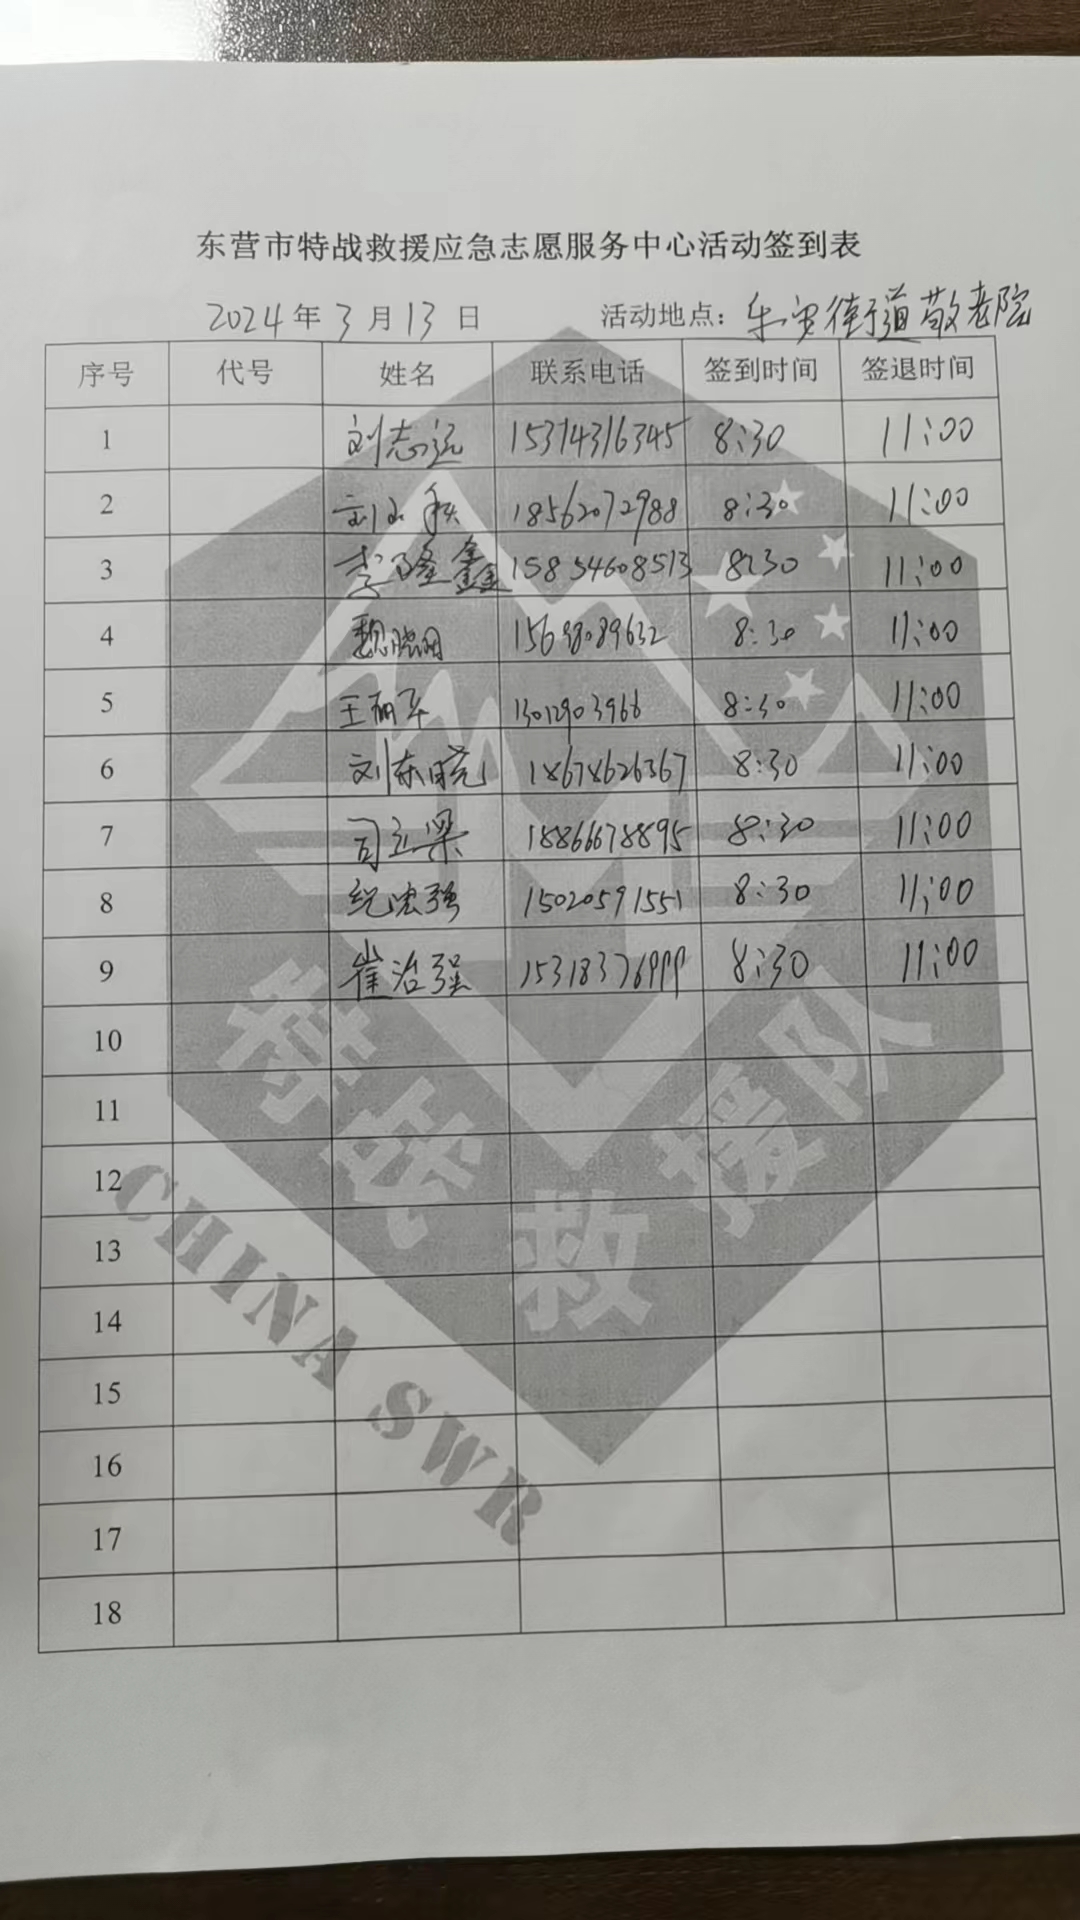 东营市特战救援应急志愿服务中心活动签到表
2024年3月13日 活动地点：乐安街道敬老院
序号 代号 姓名 联系电话 签到时间 签退时间
1 刘志远 15314316345 8:30 11:00
2 18562072988 8:30 11:00
3 李隆鑫 15854608513 8:30 11:00
4 魏晓明 15698089632 8:30 11:00
5 王丽华 13012903966 8:30 11:00
6 刘东晓 18678626367 8:30 11:00
7 司立梁 18866678895 8:30 11:00
8 纪忠强 15020591551 8:30 11:00
9 崔治强 15318376999 8:30 11:00
10
11
12
13
14
15
16
17
18
特战救援队
CHINA SWR